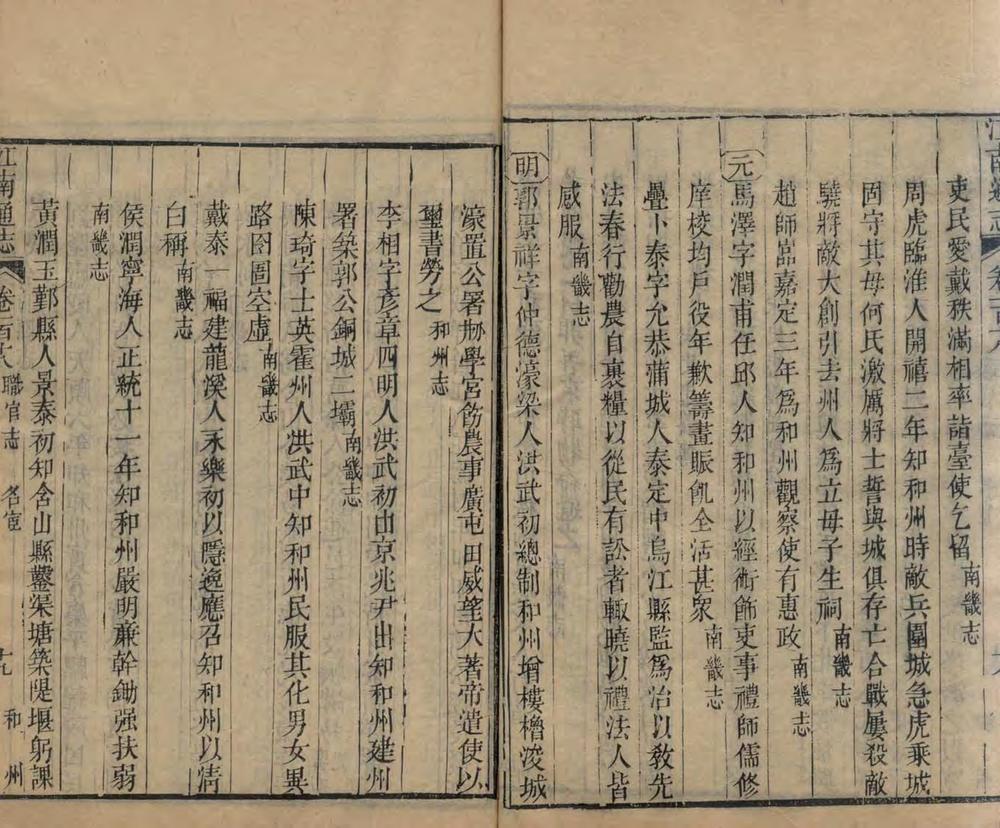 吏民愛戴秩滿相率詣臺使乞留南畿志
周虎臨淮人開禧二年知和州時敵兵圍城急虎乘城
固守其母何氏激厲將士誓與城俱存亡合戰屢殺敵
驍將敵大創引去州人爲立母子生祠南畿志
趙師嵓嘉定三年爲和州觀察使有惠政南畿志
元馬澤字潤甫任邱人知和州以經術飾吏事禮師儒修
庠校均戶役年歉籌畫賑飢全活甚衆南畿志
疊卜泰字允恭蒲城人泰定中烏江縣監爲治以敎先
法春行勸農自裹糧以從民有訟者輒曉以禮法人皆
感服南畿志
明郭景祥字仲德濠梁人洪武初總制和州增樓櫓浚城
濠置公署刱學宮飭農事廣屯田威望大著帝遣使以
璽書勞之和州志
李相字彥章四明人洪武初由京兆尹出知和州建州
署築郭公銅城二壩南畿志
陳琦字士英霍州人洪武中知和州民服其化男女異
路囹圄空虛南畿志
戴泰一福建龍溪人永樂初以隱逸應召知和州以清
白稱南畿志
侯潤寧海人正統十一年知和州嚴明亷幹鋤强扶弱
南畿志
黃潤玉鄞縣人景泰初知含山縣鑿渠塘築隄堰躬課
江南通志 卷一百十六 職官志 名宦 十九 和州